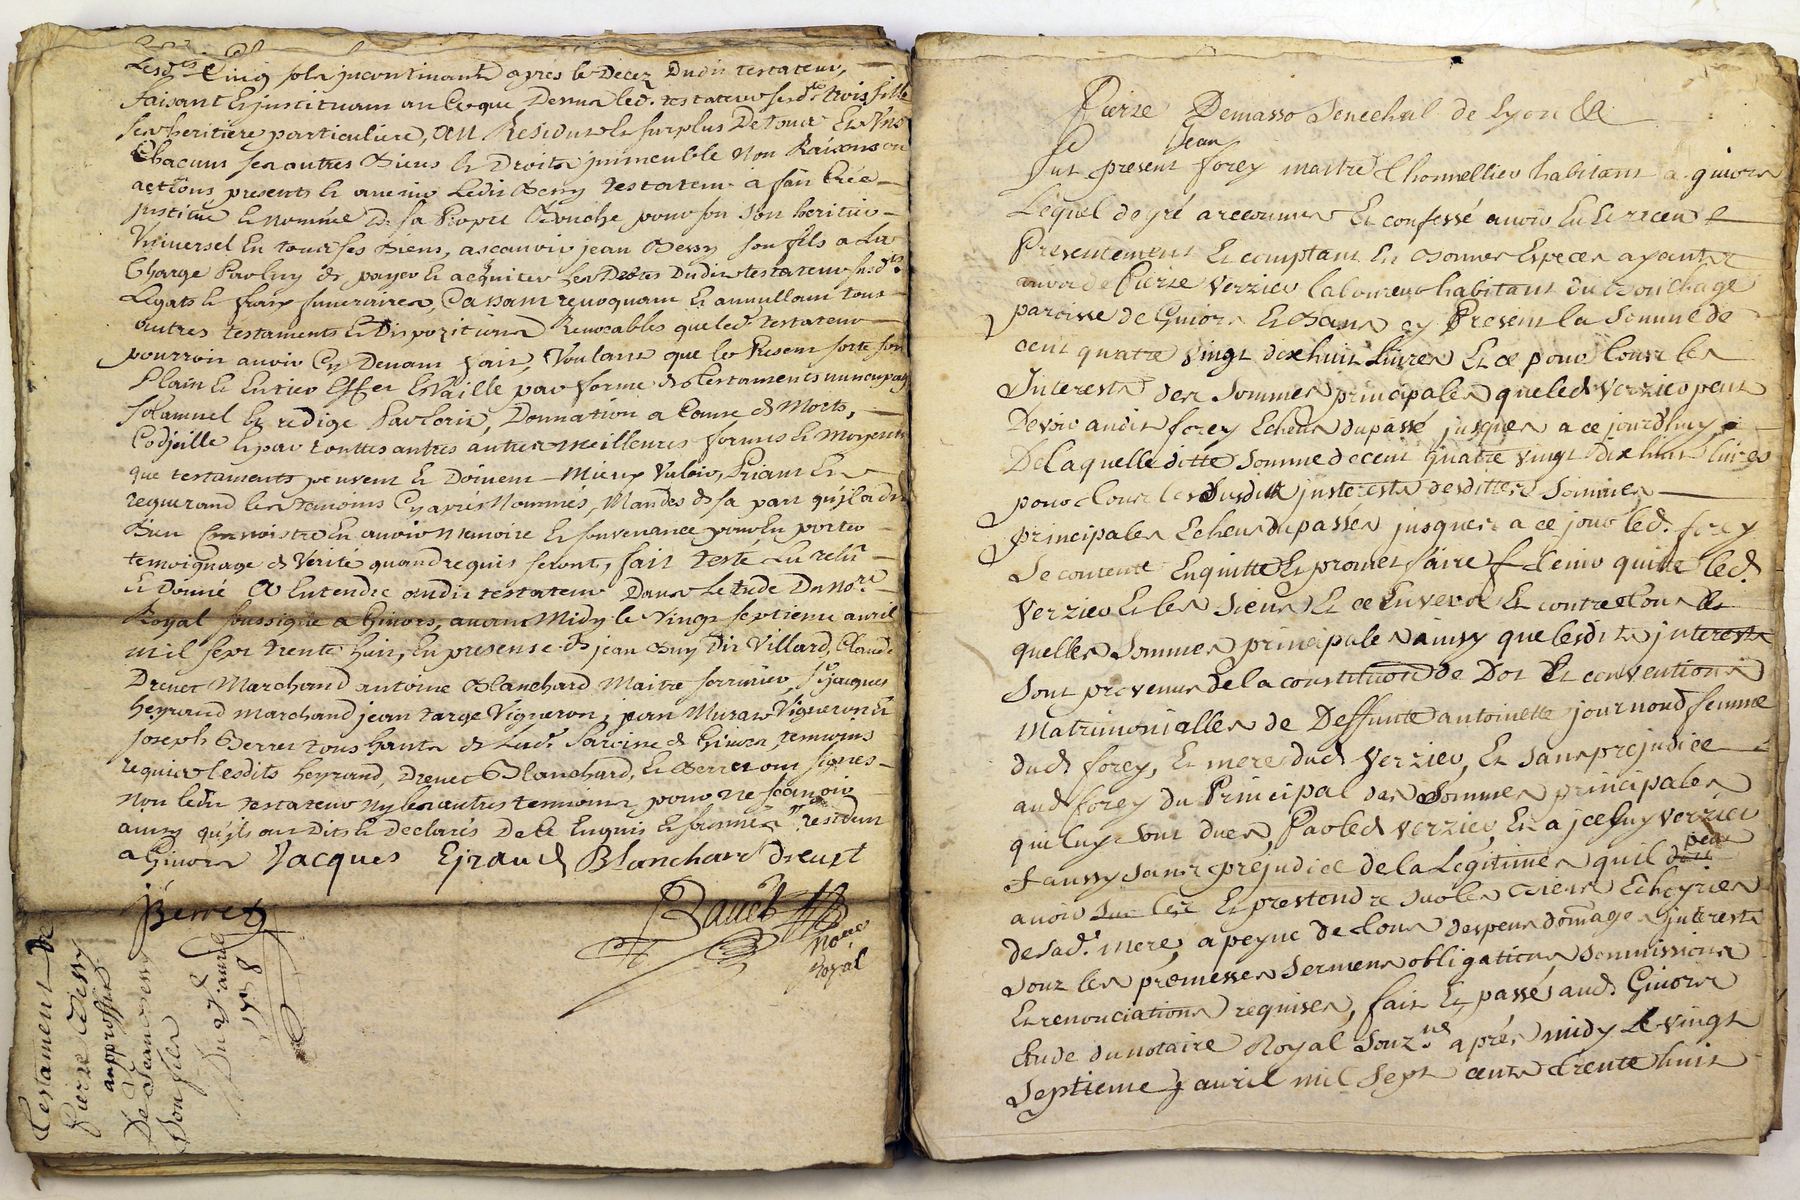 Lesd.tes Cinq sols incontinant apres le Decez Dudit testateur,
faisant & instituant au Ce que Dessus led. testateur sesd.tes trois fille
ses heritiere particuliere, au Residu & surplus De tous Et Uns
Chacuns ses autres Biens & Droits immeuble Non Raisons ou
actions presents & avenir Ledit Bessy testateur a fait Crée
institué & nommée De sa Propre Bouche pour son heritier
Universel En tous ses Biens, ascavoir jean Bessy son fils a La
Charge Par luy de payer & acquiter Les Dettes Dudit testateur susd.ts
Legats & fraix funeraires, Cassant revoquant & annullant tous
autres testaments & Dispositions Revocables que led. testateur
pourroit avoir Cy Devant fait, Voulant que le Present sorte son
Plain & Entier Effet & Vaille par forme de testaments nuncupatif
solamnel & redigé Par Ecrit, Donnation a Cause de Morts,
Codicille & par touttes autres meilleures formes & Moyents
que testaments peuvent & Doivent Mieux Valoir, Priant &
requerand les temoins Cy aprés Nommés, Mandés de sa part qu'il a dit
Bien Connoistre En avoir Memoire & souvenance pour En porter
temoignage de Verité quand requis seront, fait testé Lu relû
& Donné a Entendre audit testateur Dans Letude Du no.re
Royal soussigné a Givors, avant Midy le Vingt septieme avril
mil sept trente huit, En presense de jean Buy Dit Villard, Claude
Drevet Marchand antoine Blanchard Maitre serrurier, s.r jacques
heyraud marchand jean targe Vigneron, jean Murat Vigneron &
joseph Berret tous hants de Lad. Paroisse de Givors, temoins
requis Lesdits heyraud, Drevet Blanchard, & Berret ont signés
non ledit testateur ny les autres temoins pour ne sçavoir
ainsy qu'ils ont Dit & Declarés De Ce Enquis & sommés
a Givors Jacques Ejraud Blanchard dreuet
JBerret
Bauet
No.re
Royal
Testament De
Pierre Bessy
au proffit
De Jean Bessy
son fils
Du 27 avril
1738
Pierre Demasso Senechal de Lyon &c
Jean
Fut present forey maitre Thonnellier habitant a givors
Lequel de gré a reconnu Et confessé avoir Eu Et receu
Presentement Et comptant En bonnes Especes ayant
de Pierre Verzier laboureur habitant du bouchage
paroisse de Givors Et Bans cy Present la somme de
cent quatre vingt dixhuit Livres Et ce pour tous les
Interests des sommes principales que led. Verzier peut
Devoir audit forey Echeus du passé jusques a ce jourdhuy
De laquelle ditte somme de cent quatre vingt dix huit livres
pour tous les susdits interests desdittes sommes
principales Echeus du passés jusques a ce jour led. forey
Se contente Enquitte Et promet faire tenir quitte led.
Verzier Et les siens Et ce Envers Et contre tous
quelles sommes principales ainsy que lesdits interests
sont provenus de la constitution de Dot Et conventions
Matrimonialles de Deffunte antoinette journoud femme
dud. forey, Et mere dud. Verzier, Et sans prejudice
aud. forey du Principal des sommes principales
qui luy sont dues Par led. Verzier, Et a jceluy Verzier
aussy sans prejudice de la Legitime qu'il peut
avoir Et prestendre sur les biens Echeyries
de sad. mere, a peyne de tous despens domages interests
souz les promesses sermens obligations soumissions
Et renonciations requises, fait Et passé aud. Givors
Etude du notaire Royal souz.né aprés midy le vingt
septieme avril mil sept cents trente huit